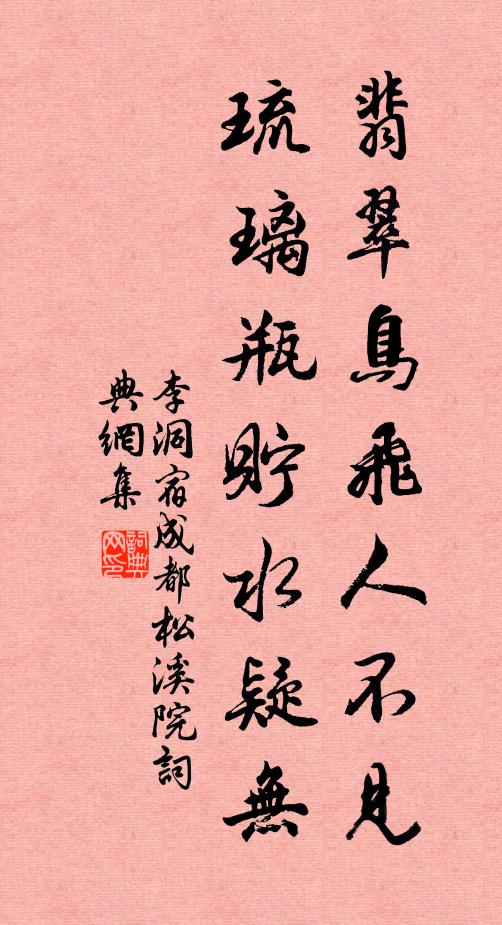 翡翠鳥飛人不見
琉璃瓶貯水疑無
李洞宿成都松溪院詞
典網集
詞典
网印